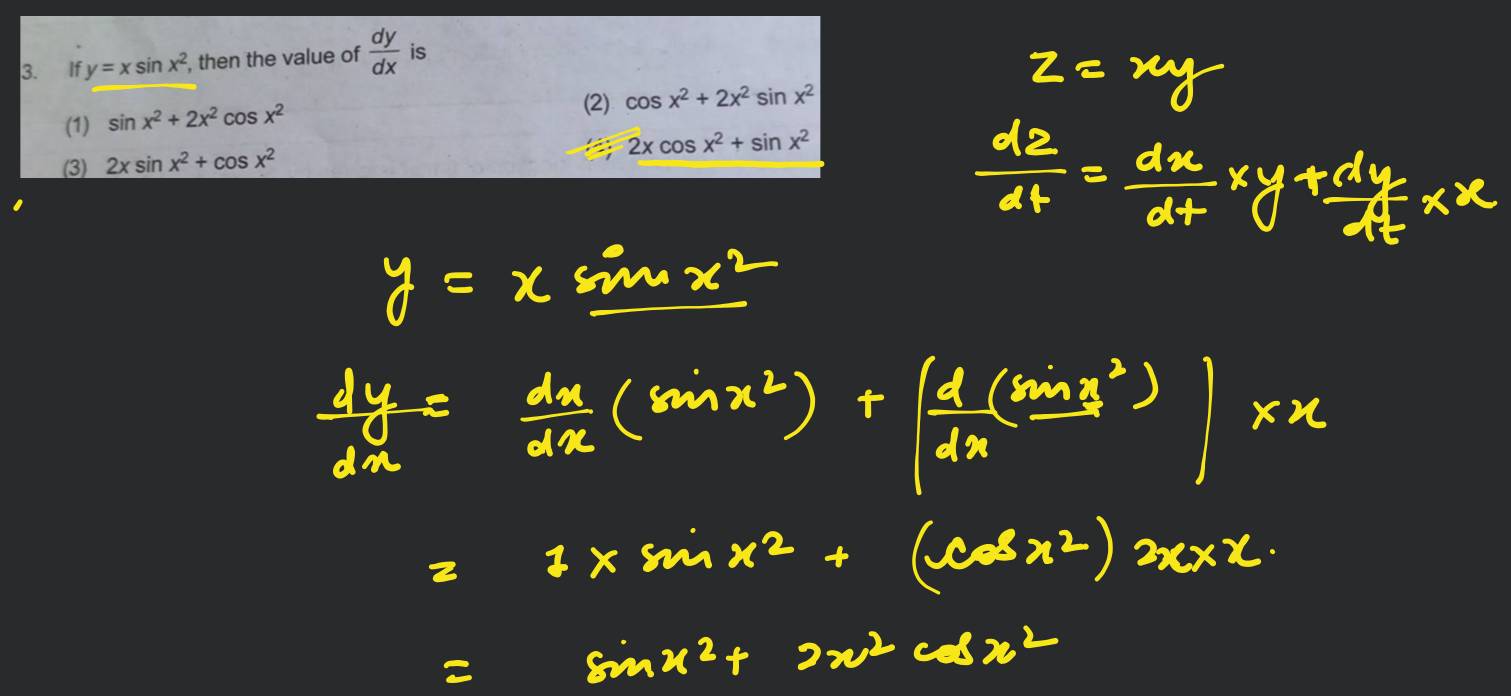 3. If y = x sin x², then the value of dy/dx is
(1) sin x² + 2x² cos x²
(2) cos x² + 2x² sin x²
(3) 2x sin x² + cos x²
2x cos x² + sin x²
z = xy
dz/dt = dx/dt × y + dy/dt × x
y = x sin x²
dy/dx = dx/dx (sin x²) + [d/dx (sin x²)] × x
= 1 × sin x² + (cos x²) 2x × x.
= sin x² + 2x² cos x²